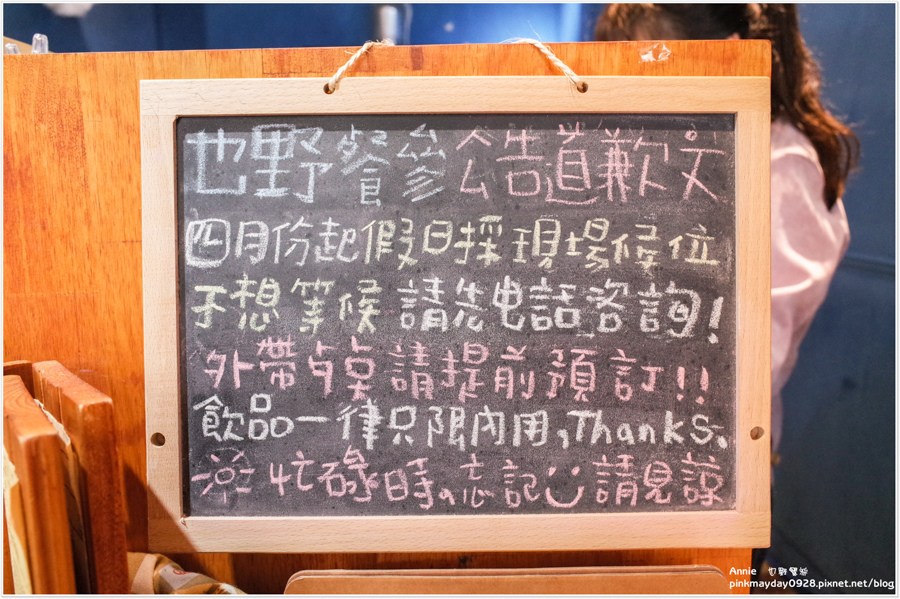 也野餐參公告道歉文
四月份起假日採現場候位
不想等候請先電話咨詢!
外帶 請提前預訂!!
飲品一律只限內用,Thanks.
忙碌時。忘記 請見諒
Annie
pinkmayday0928.pixnet.net/blog